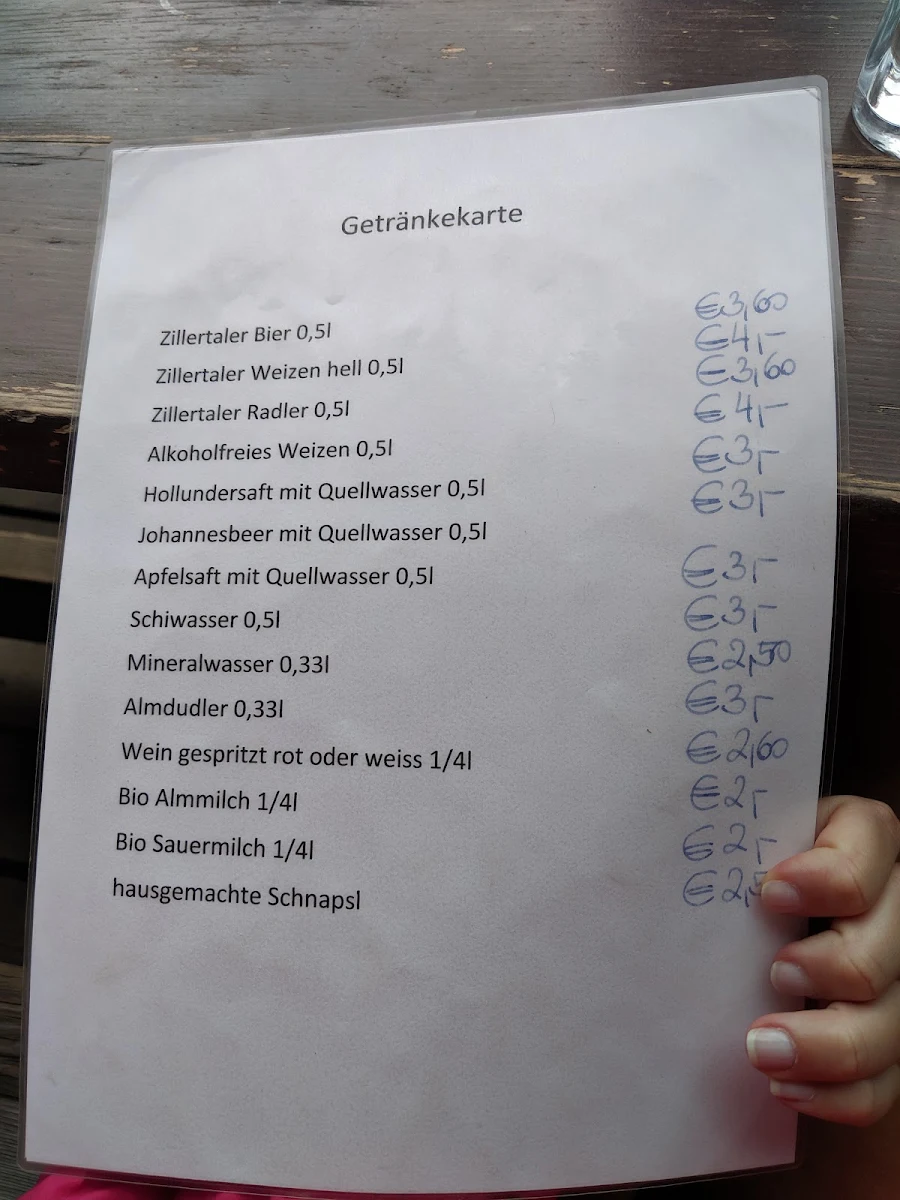 Getränkekarte
Zillertaler Bier 0,5l €3,60
Zillertaler Weizen hell 0,5l €4,-
Zillertaler Radler 0,5l €3,60
Alkoholfreies Weizen 0,5l €4,-
Hollundersaft mit Quellwasser 0,5l €3,-
Johannesbeer mit Quellwasser 0,5l €3,-
Apfelsaft mit Quellwasser 0,5l €3,-
Schiwasser 0,5l €3,-
Mineralwasser 0,33l €2,50
Almdudler 0,33l €3,-
Wein gespritzt rot oder weiss 1/4l €2,60
Bio Almmilch 1/4l €2,-
Bio Sauermilch 1/4l €2,-
hausgemachte Schnapsl €2,5